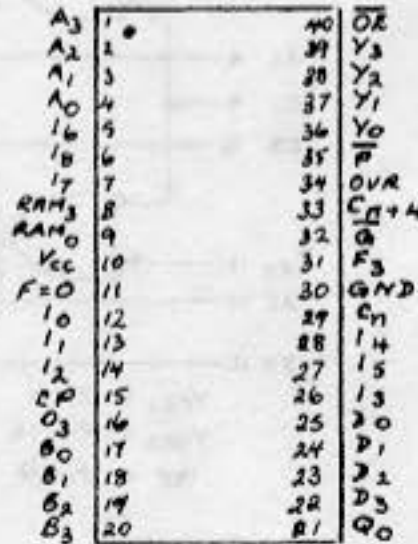 A3 1 40 OE
A2 2 39 Y3
A1 3 38 Y2
A0 4 37 Y1
I6 5 36 Y0
I8 6 35 P
I7 7 34 OVR
RAM3 8 33 Cn+4
RAM0 9 32 G
Vcc 10 31 F3
F=0 11 30 GND
I0 12 29 Cn
I1 13 28 I4
I2 14 27 I5
CP 15 26 I3
Q3 16 25 D0
B0 17 24 D1
B1 18 23 D2
B2 19 22 D3
B3 20 21 Q0